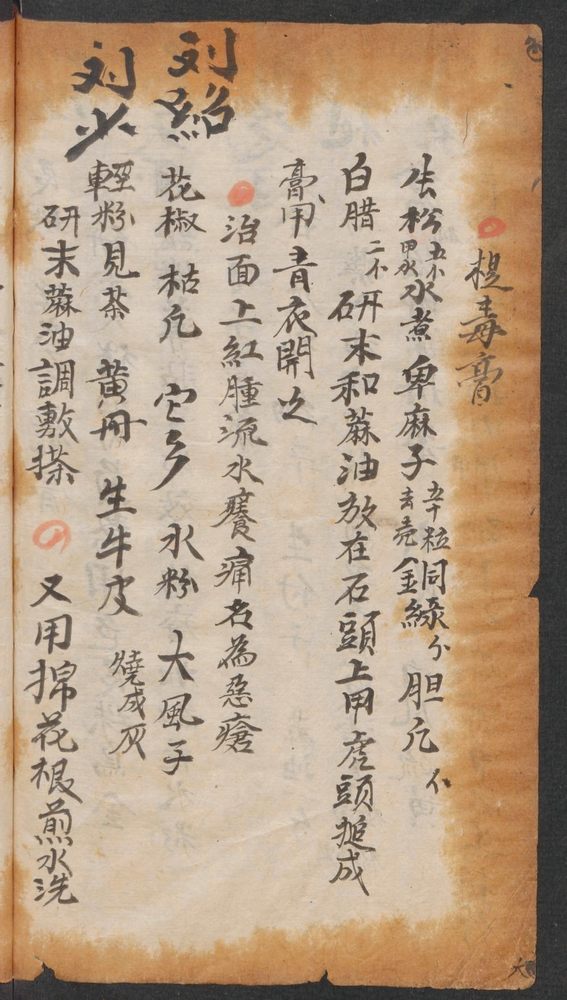 提毒膏
生松 五水 甲水 水煮 卑麻子 五十粒 去壳 同綠 分 胆凡
白腊 二 研末和蔴油放在石頭上用虎頭搥成
膏用青衣開之
治面上紅腫流水癢痛名為惡瘡
花椒 枯凡 水粉 大風子
輕粉 見茶 黄丹 生牛皮 燒成灰
研末蔴油調敷搽 又用棉花根煎水洗
刘紹
刘